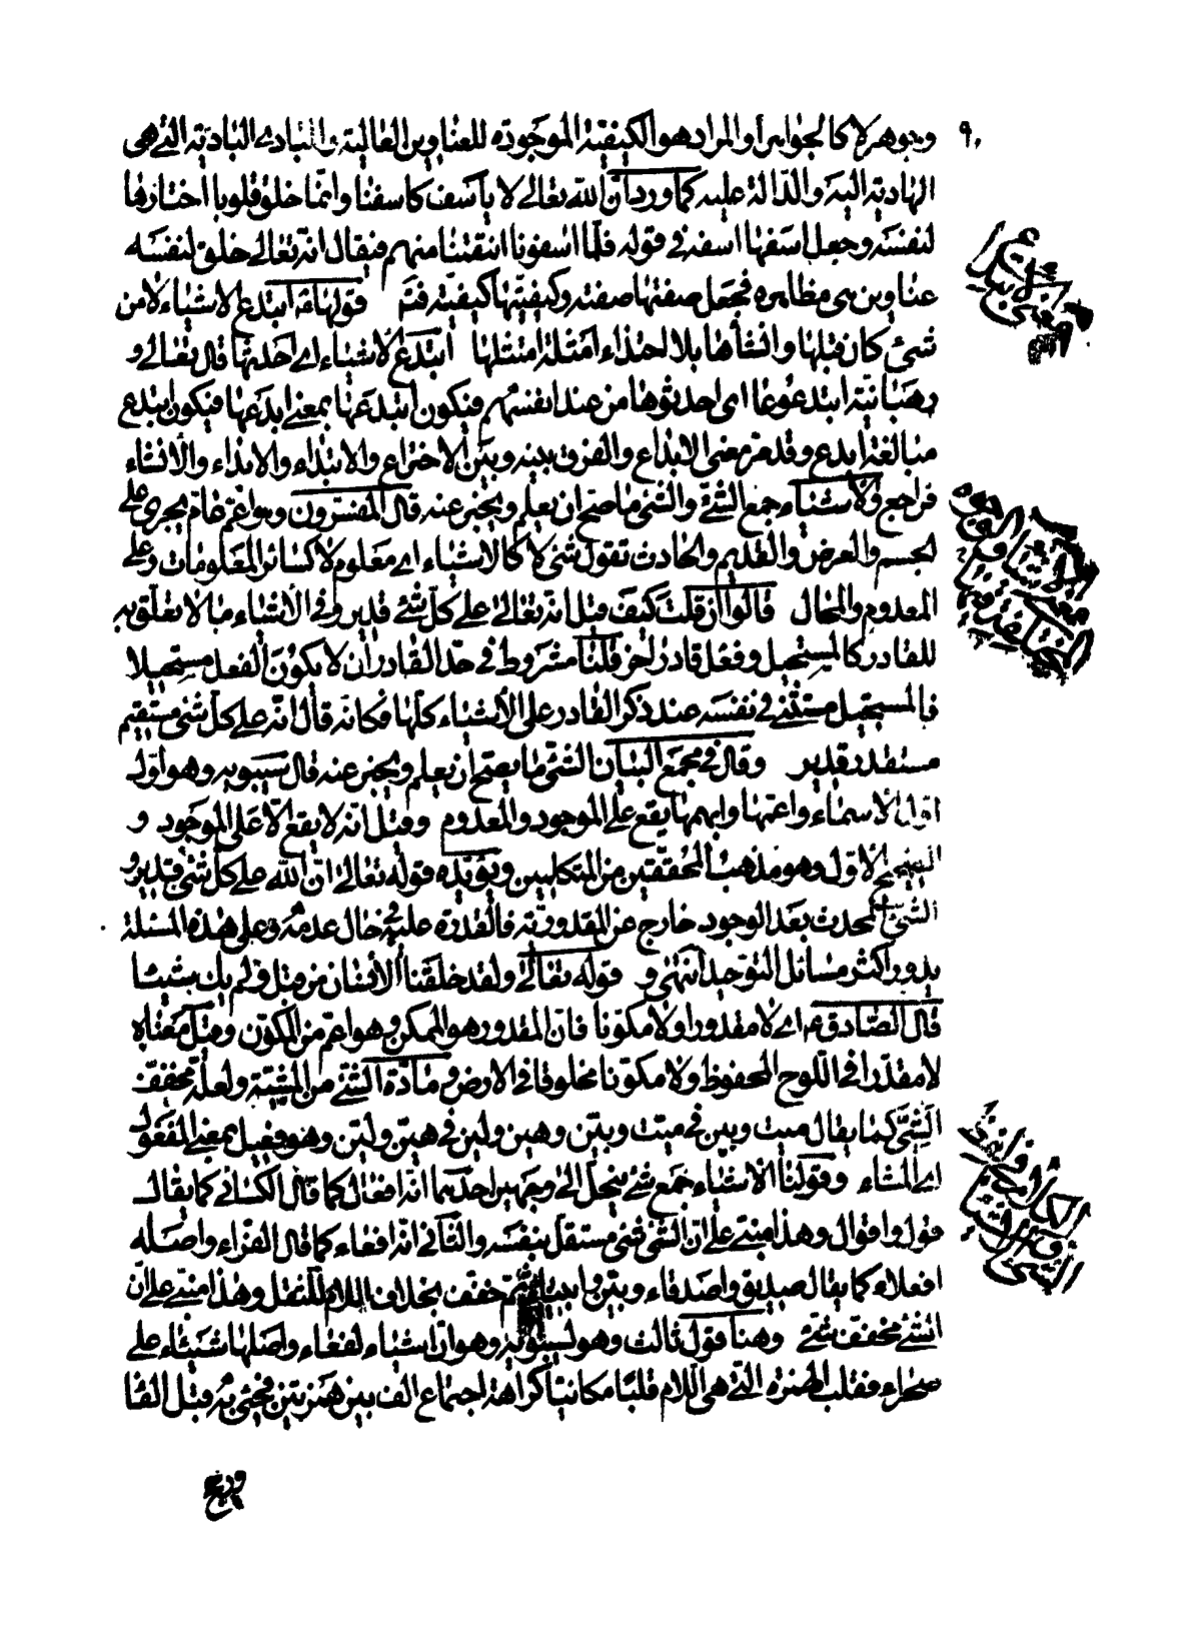 ٩٠
وجوهر لا كالجواهر أو المراد هو الكيفية الموجودة للعناوين العالية والمبادي البادية التي هي
الهادية اليه والدالة عليه كما ورد ان الله تعالى لا يأسف كاسفنا وانما خلق قلوبا اختارها
لنفسه وجعل اسفها اسفه في قوله فلما اسفونا انتقمنا منهم فيقال انه تعالى خلق لنفسه
عناوين هي مظاهره فجعل صفتها صفته وكيفيتها كيفيته فتم قولها ابتدع الاشياء لا من
شئ كان قبلها وانشأها بلا احتذاء امثلة امتثلها ابتدع الاشياء اي احدثها قال تعالى و
رهبانية ابتدعوها اي احدثوها من عند انفسهم فيكون ابتدعها بمعنى ابدعها فيكون ابتدع
مبالغة ابدع وقد مر معنى الابداع والفرق بينه وبين الاختراع والابتداء والابداء والانشاء
فراجع والاشياء جمع الشئ والشئ ما صح ان يعلم ويخبر عنه قال المفسرون وهو اعم عام يجري على
الجسم والعرض والقديم والحادث تقول شئ لا كالاشياء اي معلوم لا كسائر المعلومات وعلى
المعدوم والمحال قالوا ان قلت كيف قيل انه تعالى على كل شئ قدير وفي الاشياء ما لا تعلق به
للقادر كالمستحيل وفعل قادر اخر قلنا مشروط في حد القادر ان لا يكون الفعل مستحيلا
فالمستحيل مستثنى في نفسه عند ذكر القادر على الاشياء كلها فكانه قال انه على كل شئ مستقيم
مستقدر قدير وقال في مجمع البيان الشئ ما يصح ان يعلم ويخبر عنه قال سيبويه وهو اول
اول الاسماء واعمها وابهمها يقع على الموجود والمعدوم وقيل انه لا يقع الا على الموجود و
الصحيح الاول وهو مذهب المحققين من المتكلمين ويؤيده قوله تعالى ان الله على كل شئ قدير و
الشئ المحدث بعد الوجود خارج عن المقدورية فالقدرة عليه في حال عدمه وعلى هذه المسئلة
يدور اكثر مسائل التوحيد انتهى و قوله تعالى ولقد خلقنا الانسان من قبل ولم يك شيئا
قال الصادق ع اي لا مقدورا ولا مكونا فان المقدور هو الممكن وهو اعم من المكون وقيل معناه
لا مقدرا في اللوح المحفوظ ولا مكونا مخلوقا في الارض ومادة الشئ من المشية ولعله مخفف
الشيئ كما يقال ميت وبين في ميت وبين وهين ولين في هين ولين وهو فعيل بمعنى المفعول
اي المشاء وقولنا الاشياء جمع شئ ينحل الى وجهين احدهما انه افعال كما قال الكسائي كما يقال
قول واقوال وهذا مبني على ان الشئ شئ مستقل بنفسه والثاني انه افعاء كما قال الفراء واصله
افعلاء كما يقال صديق واصدقاء وبين وابيناء ثم خفف بحذف اللام للثقل وهذا مبني على ان
الشئ مخفف شيئ وهنا قول ثالث وهو لسيبويه وهو ان اشياء لفعاء واصلها شيئاء على
صحراء فقلب الهمزة التي هي اللام قلبا مكانيا كراهة اجتماع الف بين همزتين فجيئ به قبل الفا